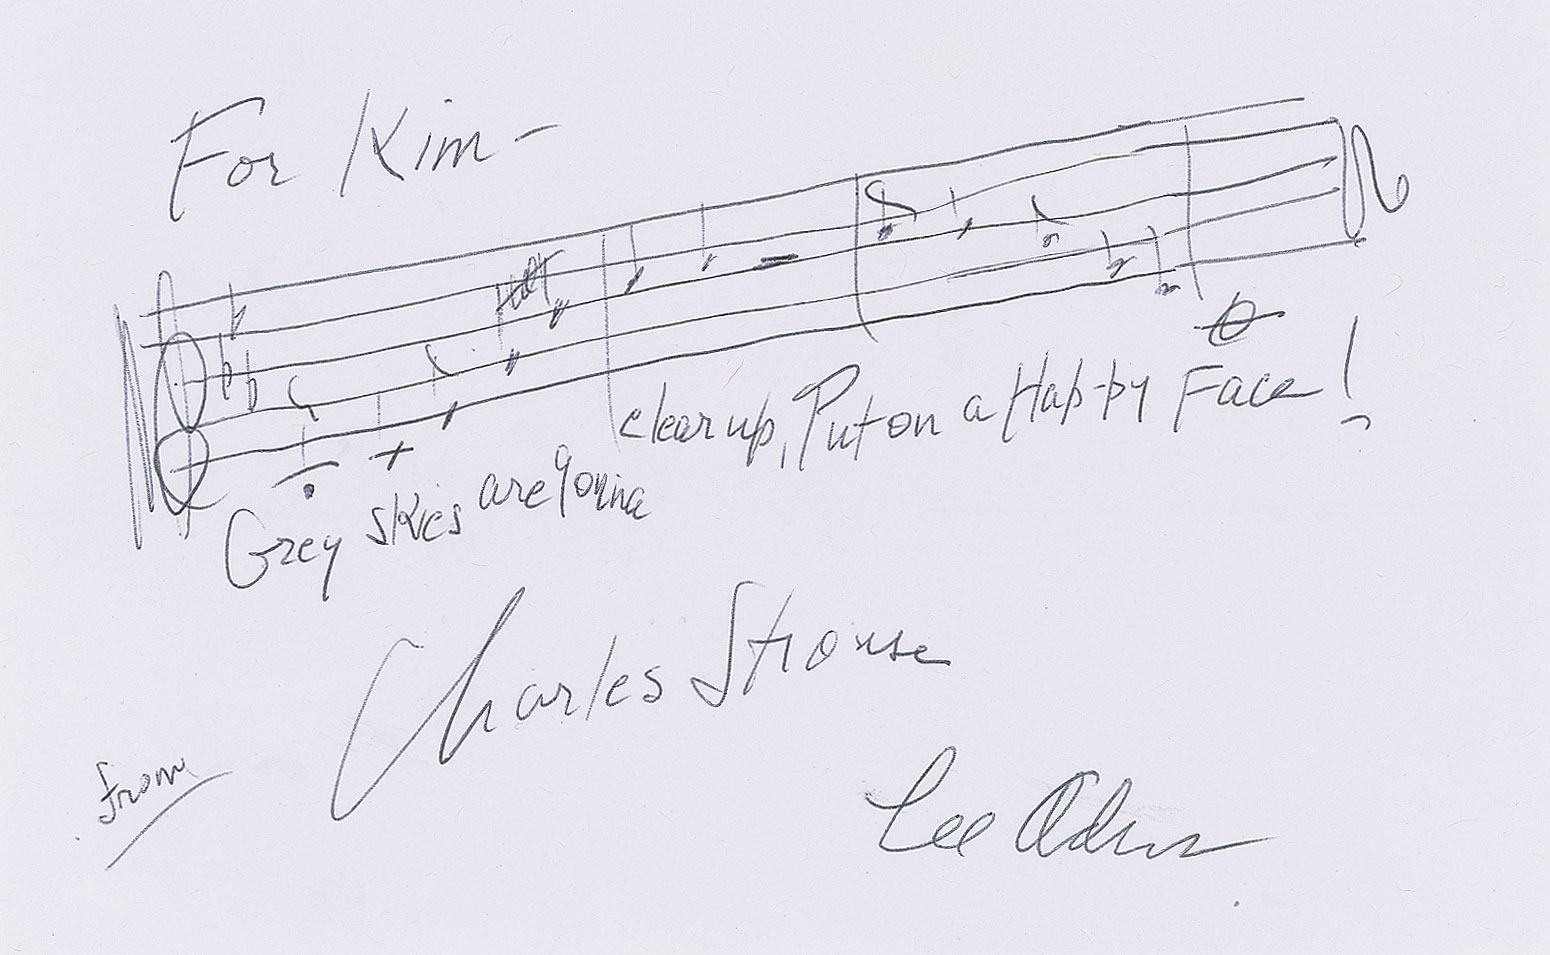 For Kim-
Grey skies are gonna clear up, Put on a Hap-py Face!
from
Charles Strouse
Lee Adams